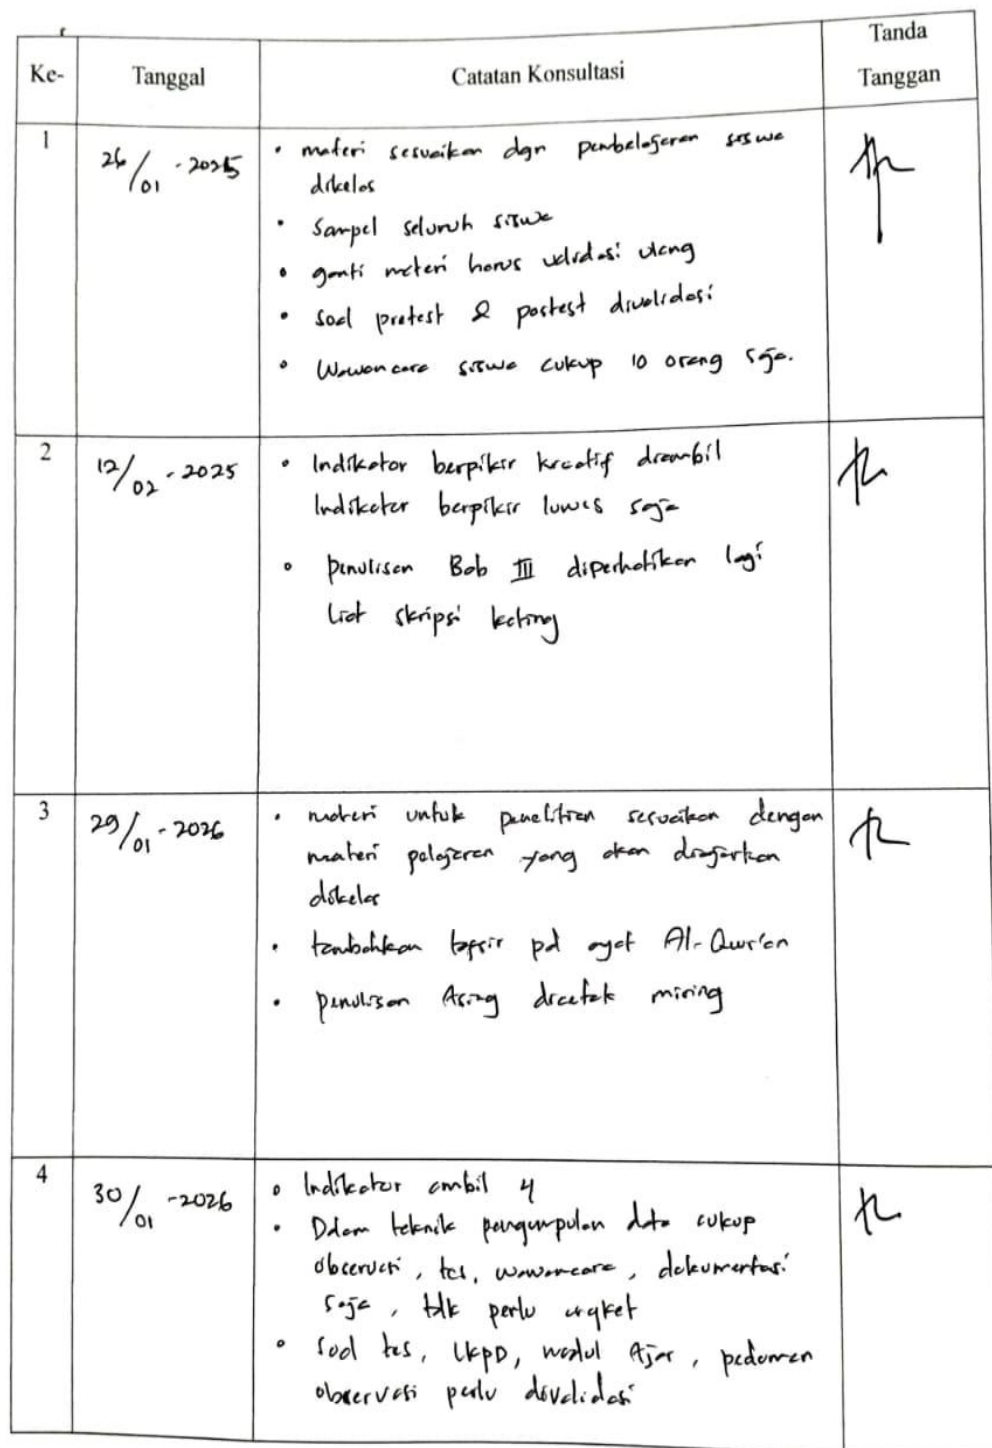 Ke-
Tanggal
Catatan Konsultasi
Tanda
Tanggan
1
26/01 - 2025
• materi sesuaikan dgn pembelajaran siswa
dikelas
• Sampel seluruh siswa
• ganti materi harus validasi ulang
• Soal pretest & postest divalidasi
• Wawancara siswa cukup 10 orang saja.
2
12/02 - 2025
• Indikator berpikir kreatif diambil
Indikator berpikir luwes saja
• penulisan Bab III diperhatikan lagi
liat skripsi kating
3
29/01 - 2026
• materi untuk penelitian sesuaikan dengan
materi pelajaran yang akan diajarkan
dikelas
• tambahkan tafsir pd ayat Al-Qur'an
• penulisan Asing dicetak miring
4
30/01 - 2026
• Indikator ambil 4
• Dalam teknik pengumpulan data cukup
observasi, tes, wawancara, dokumentasi
saja, tdk perlu angket
• Soal tes, LKPD, modul Ajar, pedoman
observasi perlu divalidasi